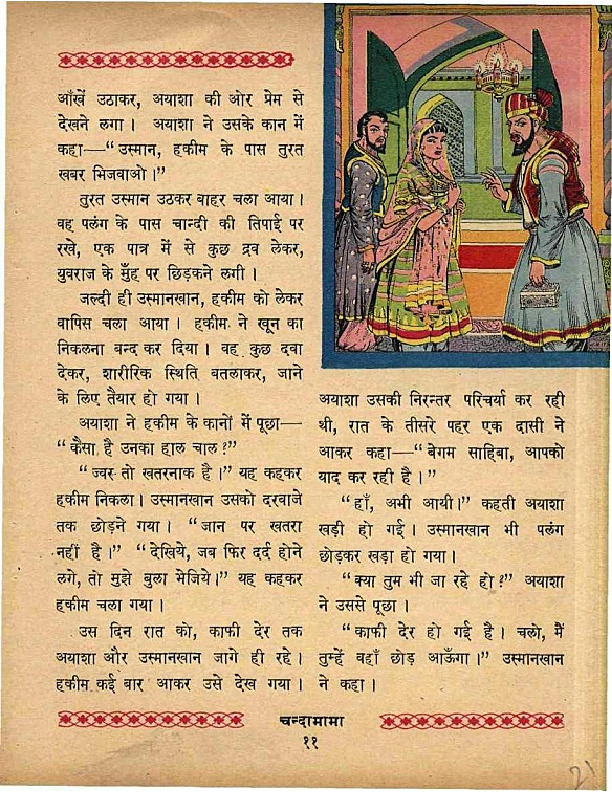 आँखें उठाकर, अयाशा की ओर प्रेम से
देखने लगा। अयाशा ने उसके कान में
कहा—"उस्मान, हकीम के पास तुरत
खबर भिजवाओ।"
तुरत उस्मान उठकर बाहर चला आया।
वह पलंग के पास चान्दी की तिपाई पर
रखे, एक पात्र में से कुछ द्रव लेकर,
युवराज के मुँह पर छिड़कने लगी।
जल्दी ही उस्मानखान, हकीम को लेकर
वापिस चला आया। हकीम ने खून का
निकलना बन्द कर दिया। वह कुछ दवा
देकर, शारीरिक स्थिति बतलाकर, जाने
के लिए तैयार हो गया।
अयाशा ने हकीम के कानों में पूछा—
"कैसा है उनका हाल चाल?"
"ज्वर तो खतरनाक है।" यह कहकर
हकीम निकला। उस्मानखान उसको दरवाजे
तक छोड़ने गया। "जान पर खतरा
नहीं है।" "देखिये, जब फिर दर्द होने
लगे, तो मुझे बुला भेजिये।" यह कहकर
हकीम चला गया।
उस दिन रात को, काफी देर तक
अयाशा और उस्मानखान जागे ही रहे।
हकीम कई बार आकर उसे देख गया।
अयाशा उसकी निरन्तर परिचर्या कर रही
थी, रात के तीसरे पहर एक दासी ने
आकर कहा—"बेगम साहिबा, आपको
याद कर रही है।"
"हाँ, अभी आयी।" कहती अयाशा
खड़ी हो गई। उस्मानखान भी पलंग
छोड़कर खड़ा हो गया।
"क्या तुम भी जा रहे हो?" अयाशा
ने उससे पूछा।
"काफी देर हो गई है। चलो, मैं
तुम्हें वहाँ छोड़ आऊँगा।" उस्मानखान
ने कहा।
चन्दामामा
११
21